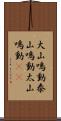 大山鳴動泰
山鳴動太山
鳴動